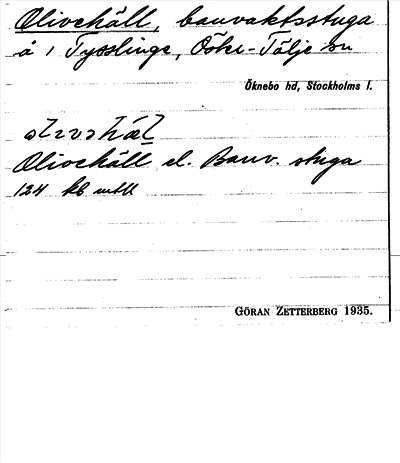 Olivehäll, banvaktsstuga
å 1 Tysslinge, Öster-Tälje sn
Öknebo hd, Stockholms l.
Olivehäll el. Banv. stuga
124 kb mtll
GÖRAN ZETTERBERG 1935.